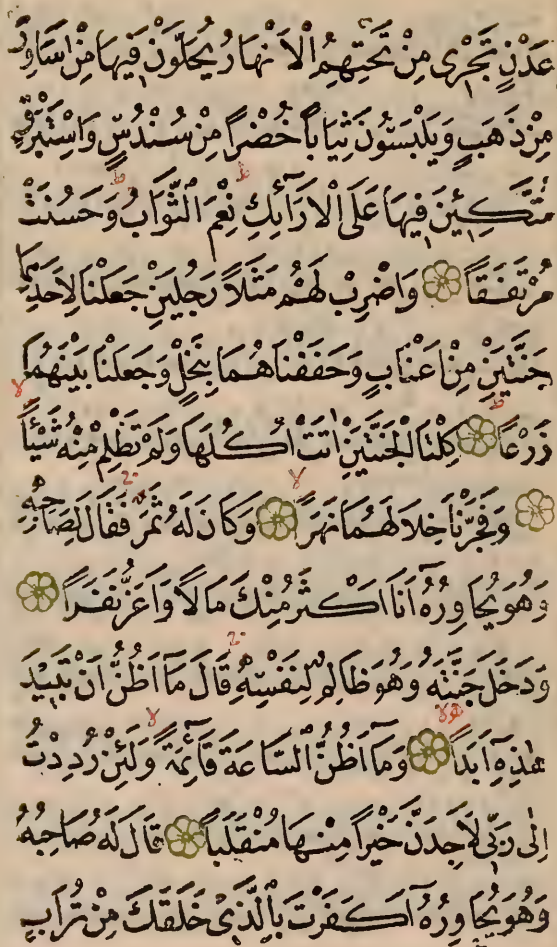 عَدْنٍ تَجْرٖى مِنْ تَحْتِهِمُ الْاَنْهَارُ يُحَلَّوْنَ فٖيهَا مِنْ اَسَاوِرَ
مِنْ ذَهَبٍ وَيَلْبَسُونَ ثِيَابًا خُضْرًا مِنْ سُنْدُسٍ وَاِسْتَبْرَقٍ
مُتَّكِـٖٔينَ فٖيهَا عَلَى الْاَرَآئِكِ نِعْمَ الثَّوَابُ وَحَسُنَتْ
مُرْتَفَقًا وَاضْرِبْ لَهُمْ مَثَلًا رَجُلَيْنِ جَعَلْنَا لِاَحَدِهِمَا
جَنَّتَيْنِ مِنْ اَعْنَابٍ وَحَفَفْنَاهُمَا بِنَخْلٍ وَجَعَلْنَا بَيْنَهُمَا
زَرْعًا كِلْتَا الْجَنَّتَيْنِ اٰتَتْ اُكُلَهَا وَلَمْ تَظْلِمْ مِنْهُ شَيْئًا
وَفَجَّرْنَا خِلَالَهُمَا نَهَرًا وَكَانَ لَهُ ثَمَرٌ فَقَالَ لِصَاحِبِهٖ
وَهُوَ يُحَاوِرُهُٓ اَنَا اَكْثَرُ مِنْكَ مَالًا وَاَعَزُّ نَفَرًا
وَدَخَلَ جَنَّتَهُ وَهُوَ ظَالِمٌ لِنَفْسِهٖ قَالَ مَٓا اَظُنُّ اَنْ تَبٖيدَ
هٰذِهٖٓ اَبَدًا وَمَٓا اَظُنُّ السَّاعَةَ قَٓائِمَةً وَلَئِنْ رُدِدْتُ
اِلٰى رَبّٖى لَاَجِدَنَّ خَيْرًا مِنْهَا مُنْقَلَبًا قَالَ لَهُ صَاحِبُهُ
وَهُوَ يُحَاوِرُهُٓ اَكَفَرْتَ بِالَّذٖى خَلَقَكَ مِنْ تُرَابٍ